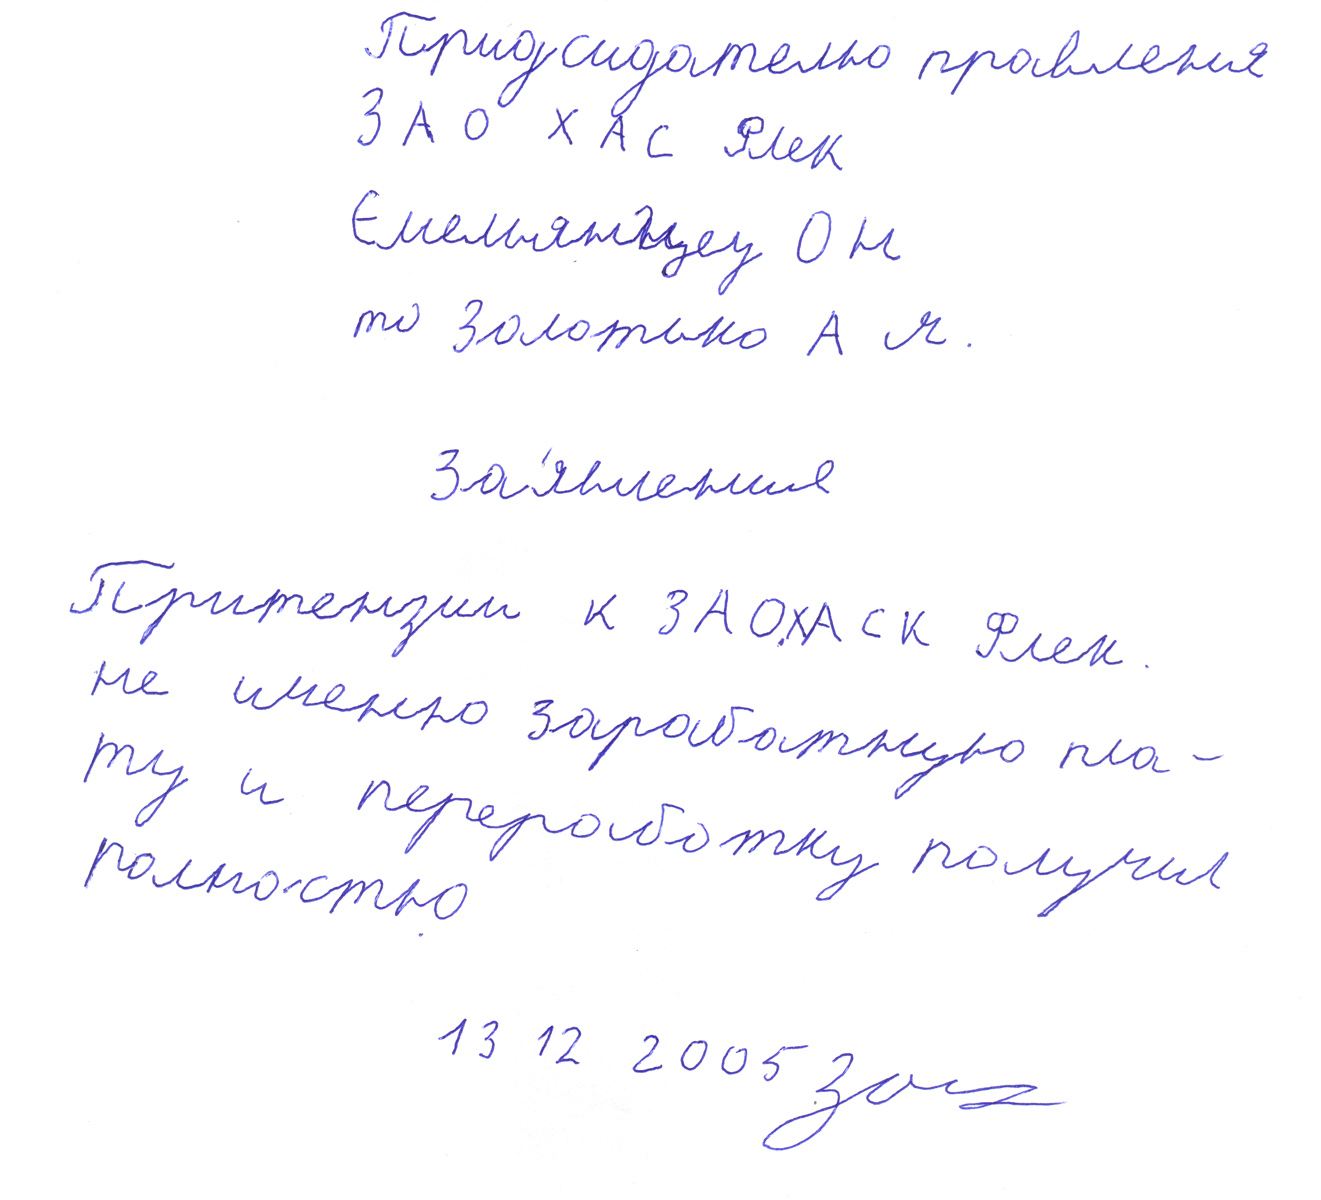 Придсидателю правления
ЗАО ХАС Флек
Емельянцеу ОН
то Золотько А М.
Заявления
Притензии к ЗАОХАСК Флек.
не именно заработную пла-
ту и переработку получил
полностю
13 12 2005